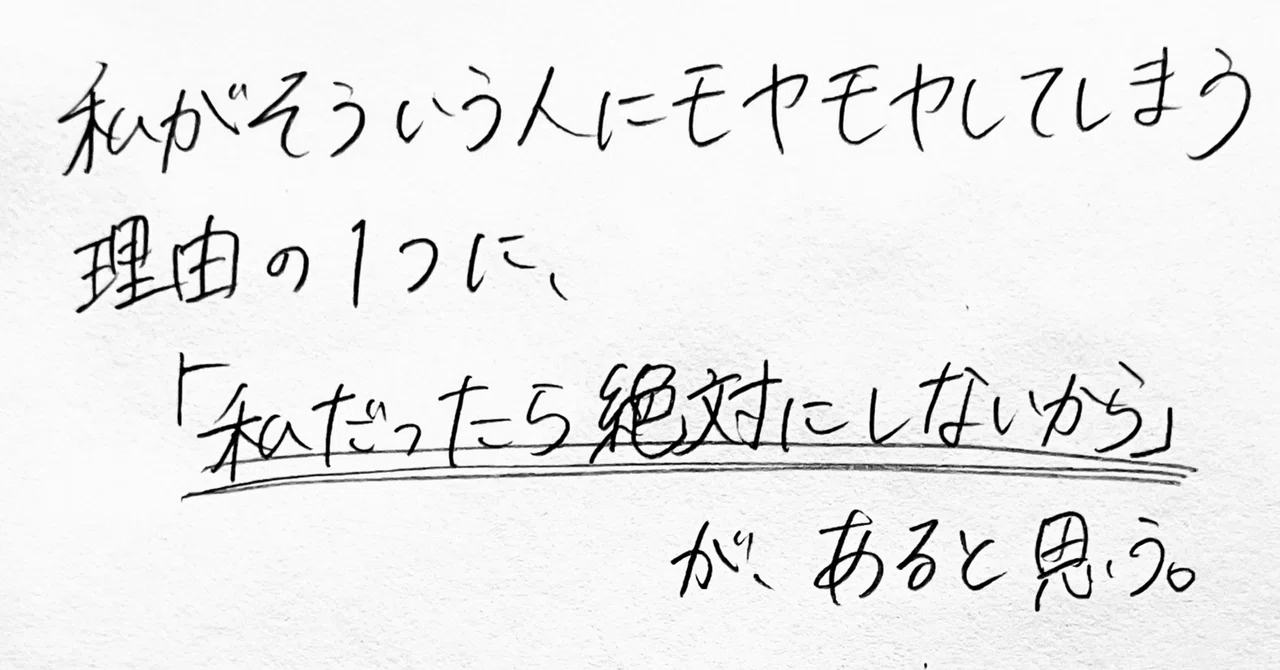 私がそういう人にモヤモヤしてしまう
理由の1つに、
「私だったら絶対にしないから」
が、あると思う。